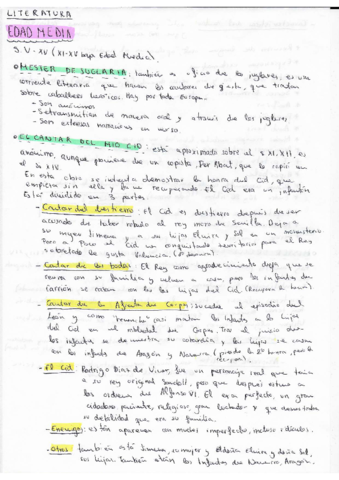 LITERATURA
EDAD MEDIA
S. V-XV (XI-XV baja Edad Media).
• MESTER DE JUGLARÍA: también u oficio de los juglares, es una
corriente literaria que hacían los cantares de gesta, que tratan
sobre caballeros heroicos. Hay por toda Europa.
- Son anónimos
- Se transmitían de manera oral y através de juglares
- Son extensos narrativos en verso.
• EL CANTAR DEL MIO CID: está aproximado sobre el s XI, XII, es
anónimo, aunque proviene de un copista, Per Abat, que lo copió en
el s XIV.
En esta obra se intenta demostrar la honra del Cid, que
empieza sin ella y la va recuperando. El Cid era un infanzón
Está dividido en 3 partes.
- Cantar del destierro: El Cid es desterrado después de ser
acusado de haber robado al rey moro de Sevilla. Deja a
su mujer Jimena y a sus hijas Elvira y Sol en un monasterio
Poco a Poco el Cid va conquistando territorio para el Rey
- Cantar de las bodas: El Rey como agradecimiento deja que se
reúna con su familia y vuelva a casa, pero los infantes de
Carrión se casan con las hijas del Cid (Recupera la honra)
- Cantar de la Afrenta de Corpes: sucede el episodio del
León y como "venganza" casi matan los infantes a las hijas
del Cid en el robledal de Corpes. Tras el juicio de
los infantes se demuestra su cobardía y las hijas se casan
con los infantes de Aragón y Navarra (pierde la 2ª honra, pero la
recupera).
- El Cid: Rodrigo Díaz de Vivar, fue un personaje real que tenía
a su rey original Sancho II, pero que después estuvo a
las órdenes de Alfonso VI. Él era perfecto, un gran
padre, religioso, gran luchador y que demostraba
su debilidad que era su familia.
- Enemigos: están aparecen con moros imperfectos, malos ridículos.
- Otros: también está Jimena, su mujer y doña Elvira y doña Sol,
sus hijas. También están los Infantes de Navarra, Aragón.